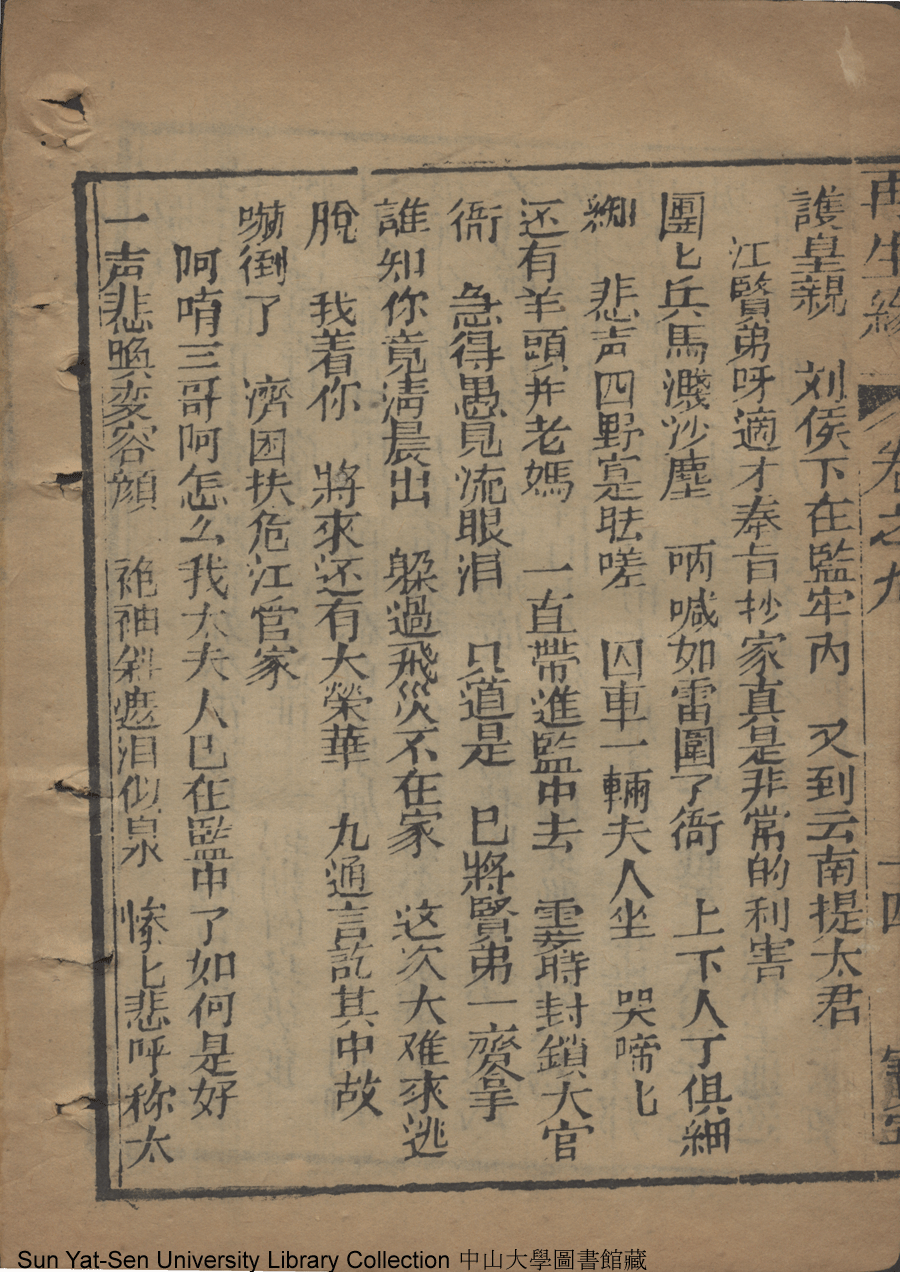 再生緣 卷之九 十四
護皇親 刘侯下在監牢內 又到云南提太君
江賢弟呀適才奉旨抄家真是非常的利害
團匕兵馬濺沙塵 吶喊如雷圍了衙 上下人丁俱綑
綁 悲声四野寔咗嗟 囚車一輛夫人坐 哭啼匕
还有羊頭并老媽 一直帶進監中去 霎時封鎖大官
衙 急得愚兄流眼泪 只道是 已將賢弟一齊拿
誰知你竟淸晨出 躲過飛災不在家 这次大难來逃
脫 我着你 將來还有大榮華 九通言訖其中故
嚇倒了 濟困扶危江官家
阿唷三哥阿怎么我太夫人已在監中了如何是好
一声悲喚変容顔 袍袖斜遮泪似泉 惨匕悲呼称太
Sun Yat-Sen University Library Collection 中山大學圖書館藏